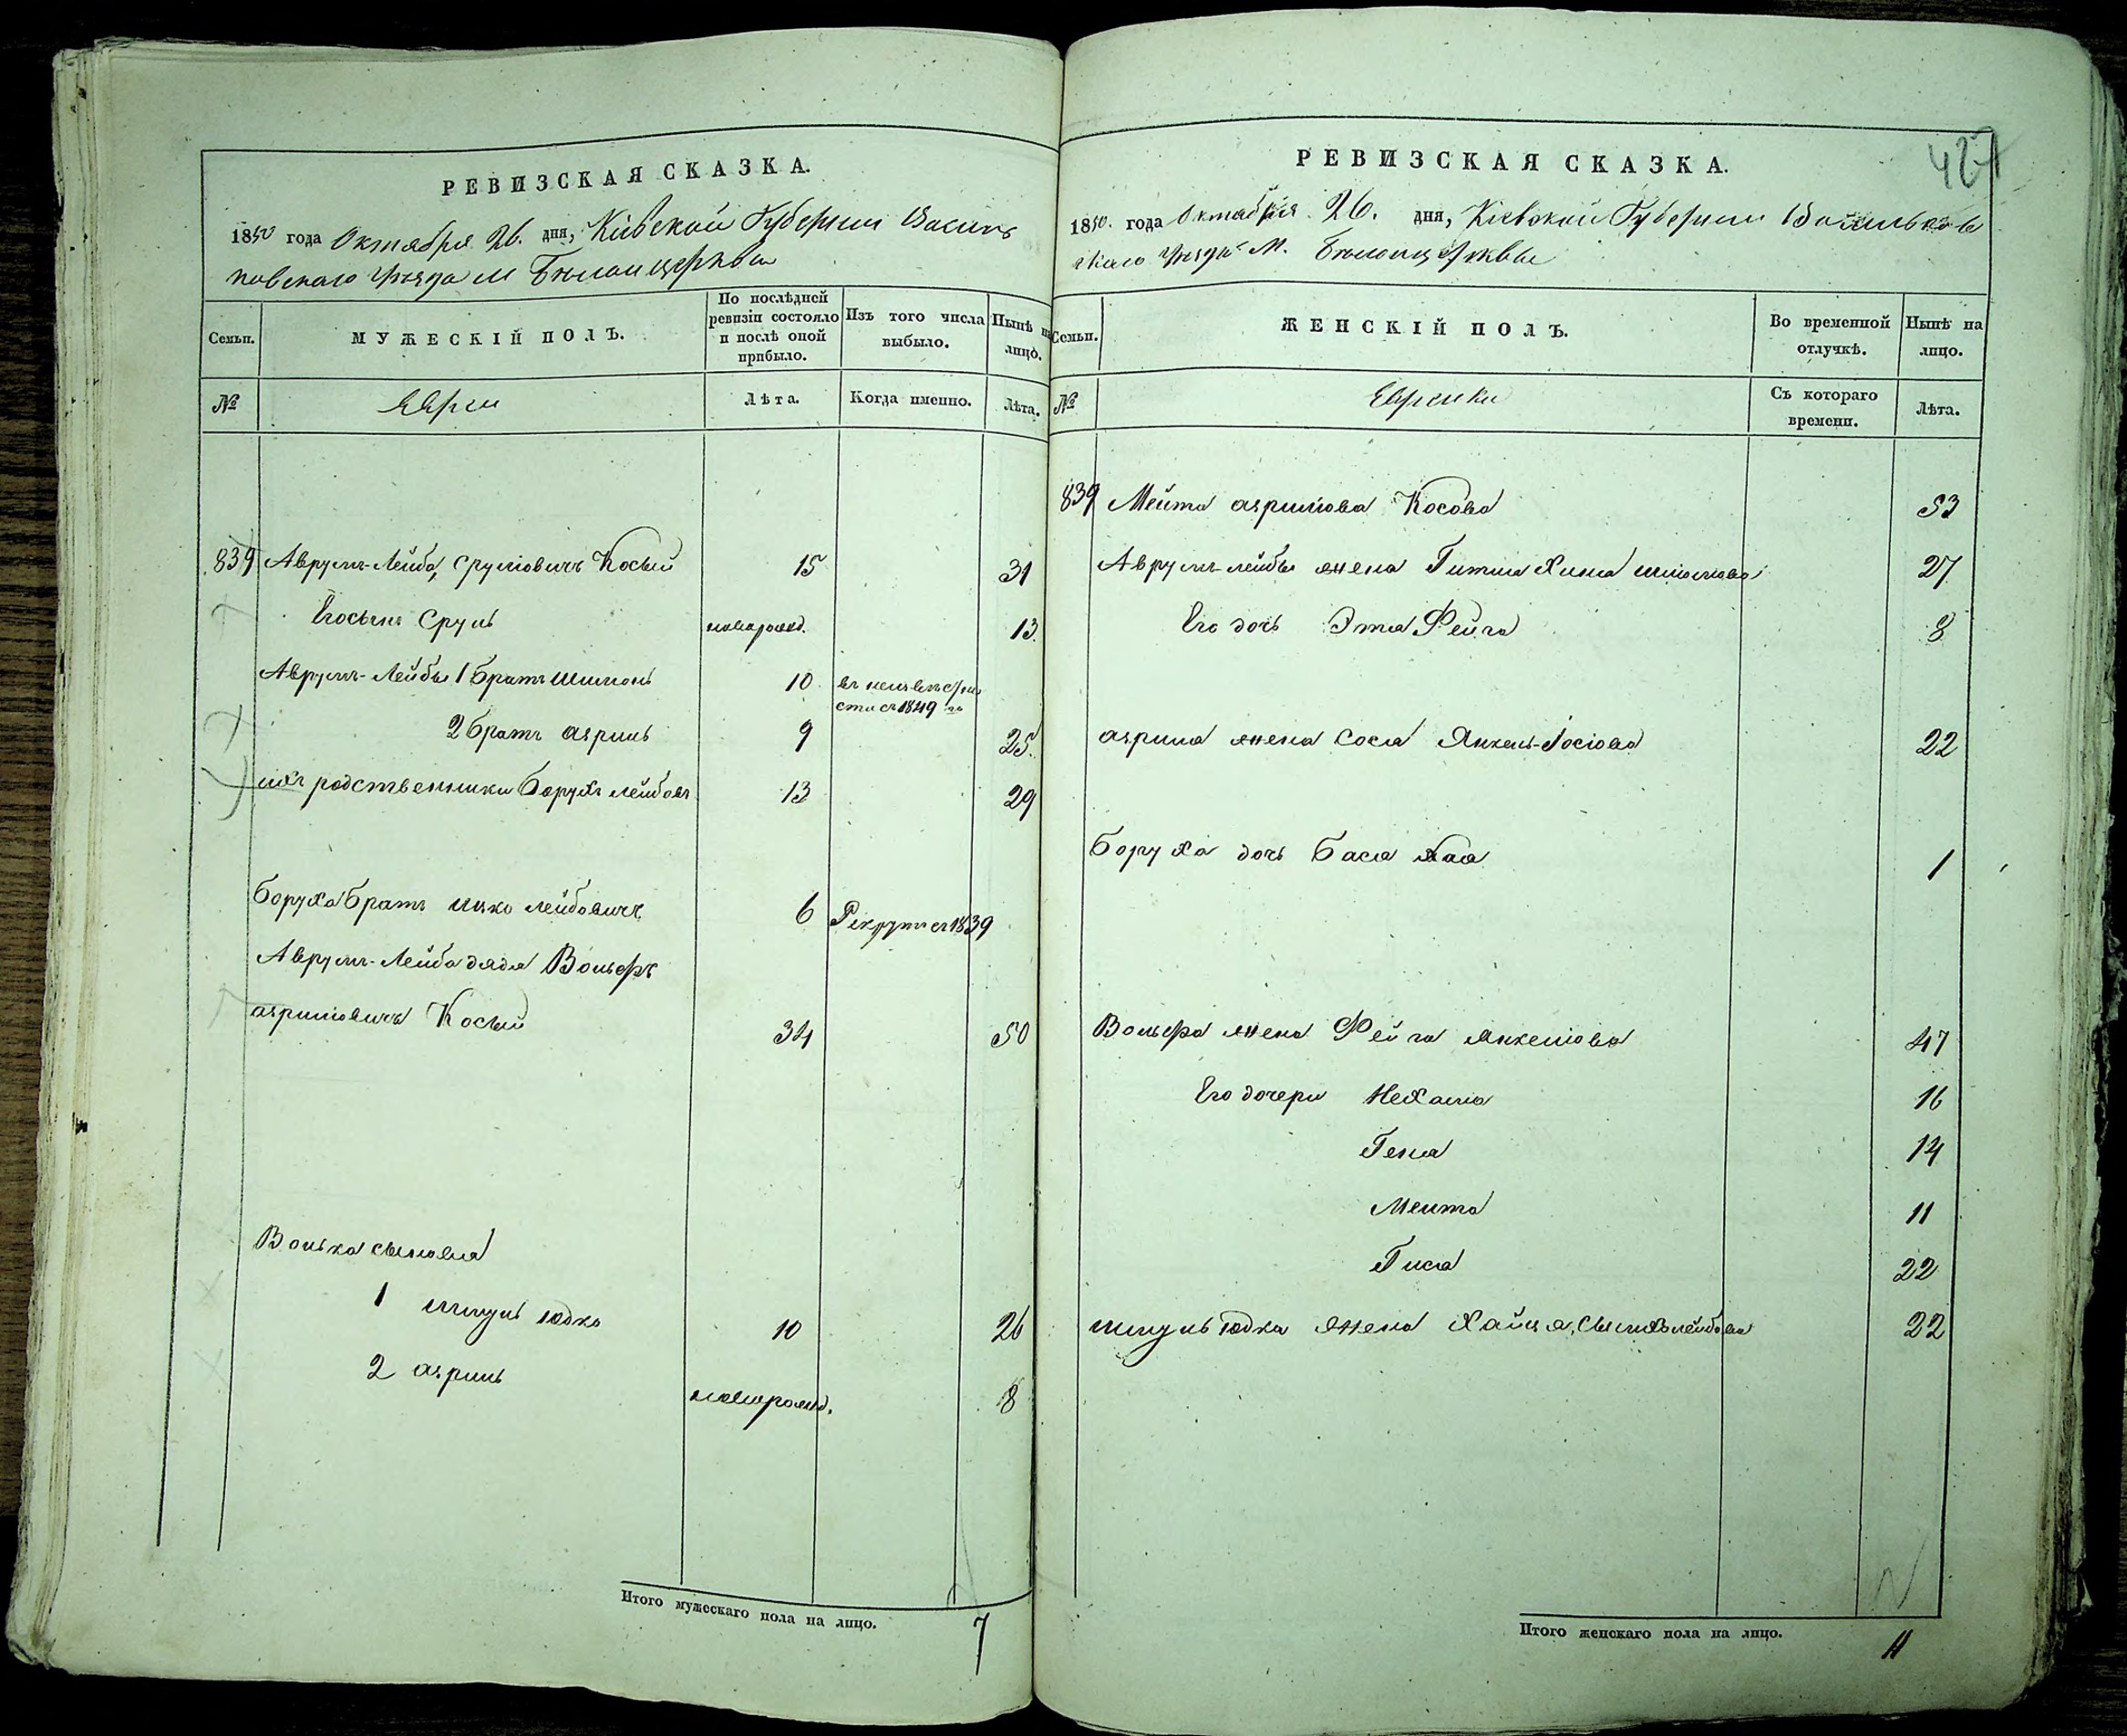 РЕВИЗСКАЯ СКАЗКА.
1850 года Октября 26. дня, Кіевской Губерніи Василь
ковскаго уѣзда м Бѣлой церкви
Семьи.
МУЖЕСКІЙ ПОЛЪ.
По послѣдней ревизіи состояло и послѣ оной прибыло.
Изъ того числа выбыло.
Нынѣ на лицо.
№
Евреи
Лѣта.
Когда именно.
Лѣта.
839 Аврумъ-Лейба, Срулiовичъ Косый 15 31
Его сынъ Сруль новорожд. 13
Аврумъ-Лейбы 1 братъ Шимонъ 10 въ неизвѣстно
сти съ 1849 го
2 братъ Азриль 9 25
ихъ родственники Борухъ Лейбовъ 13 29
Боруха братъ Ицко Лейбовичъ 6 Рекрутъ съ 1839
Аврумъ-Лейба дядя Вольфъ
Азрилiовичъ Косый 34 50
Волька сыновья
1 Шмуль Юдко 10 26
2 Азриль новорожд. 8
Итого мужескаго пола на лицо. 7
427
РЕВИЗСКАЯ СКАЗКА.
1850. года Октября 26. дня, Кіевской Губерніи Васильков
скаго уѣзда М. Бѣлойцеркви
Семьи.
ЖЕНСКІЙ ПОЛЪ.
Во временной отлучкѣ.
Нынѣ на лицо.
№
Еврейки
Съ котораго времени.
Лѣта.
839 Мейта Азрилiова Косова 53
Аврумъ Лейбы жена Гитля Хина Шлiомова 27
Его дочь Эта Фейга 8
Азриля жена Сося Янкель-Іосiова 22
Боруха дочь Бася Хая 1
Вольфа жена Фейга Янкелiова 47
Его дочери Нехама 16
Геня 14
Мейта 11
Гися 22
Шмуль Юдка жена Хайця, 22
Итого женскаго пола на лицо. 11